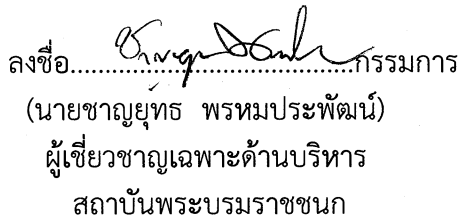 ลงชื่อ.......................................กรรมการ
(นายชาญยุ้ทธ พรหมประพัฒน์)
ผู้เชี่ยวชาญเฉพาะด้านบริหาร
สถาบันพระบรมราชชนก